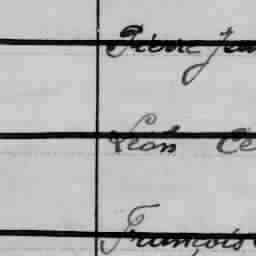 Pierre Jea
Léon Cé
François